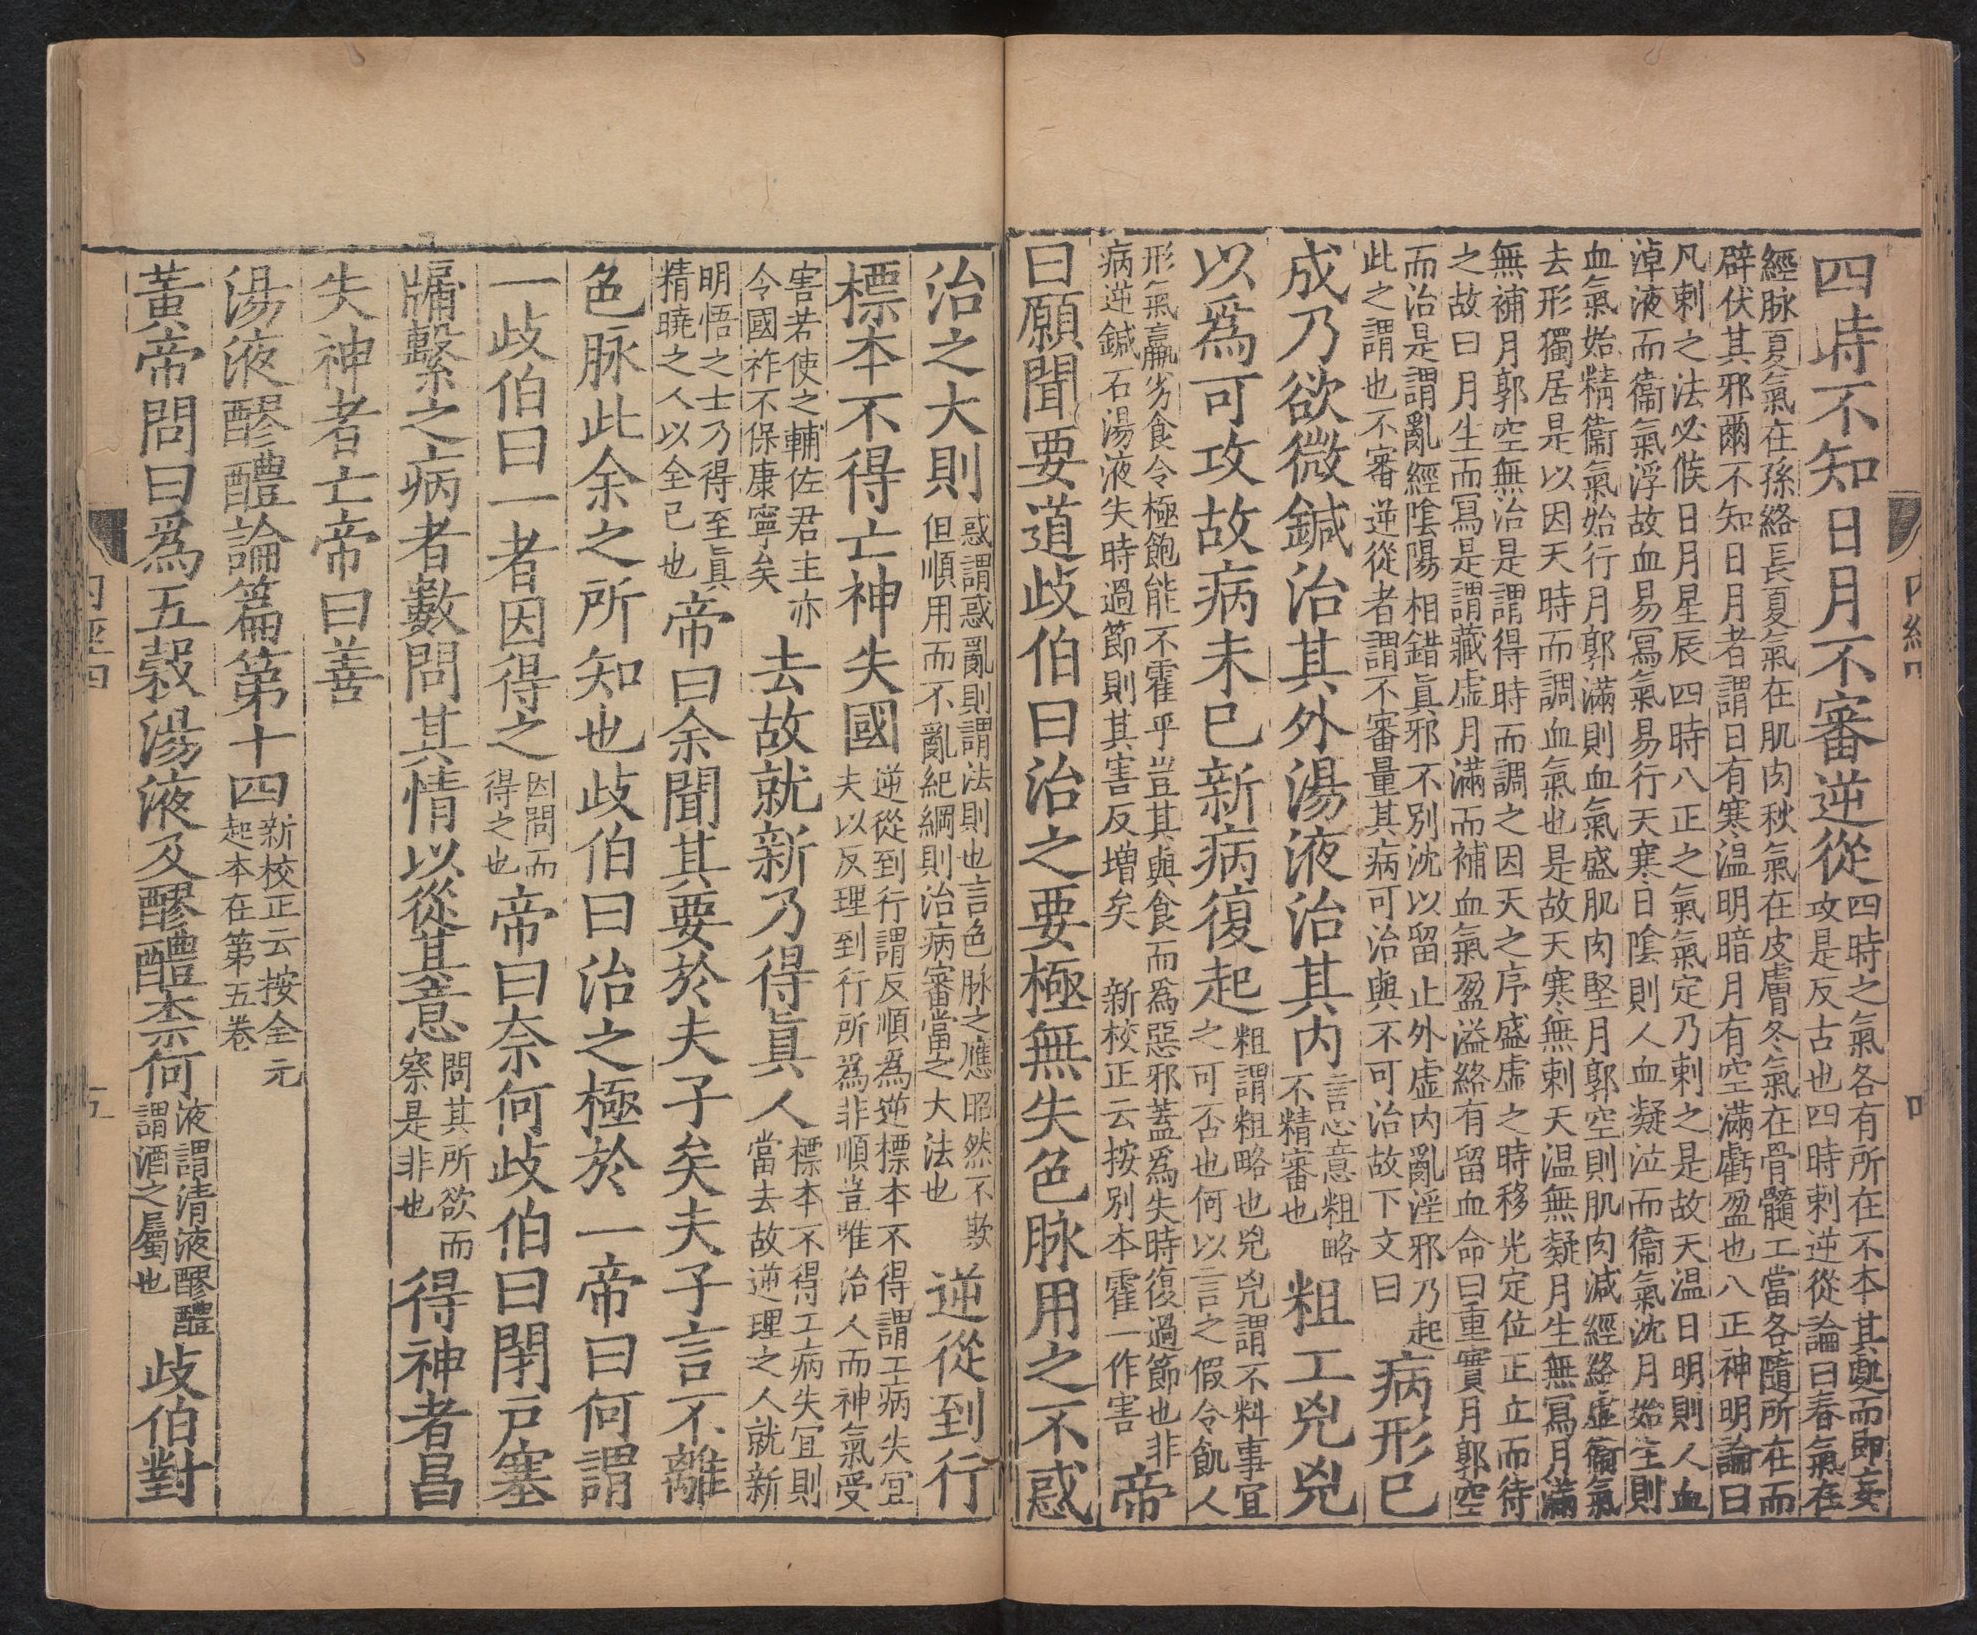 四時不知日月不審逆從
四時之氣各有所在不本其處而即妄
攻是反古也四時刺逆從論曰春氣在
經脉夏氣在孫絡長夏氣在肌肉秋氣在皮膚冬氣在骨髓工當各隨所在而
辟伏其邪爾不知日月者謂日有寒温明暗月有空滿虧盈也八正神明論曰
凡刺之法必候日月星辰四時八正之氣氣定乃刺之是故天温日明則人血
淖液而衞氣浮故血易寫氣易行天寒日陰則人血凝泣而衞氣沈月始生則
血氣始精衞氣始行月郭滿則血氣盛肌肉堅月郭空則肌肉減經絡虛衞氣
去形獨居是以因天時而調血氣也是故天寒無刺天温無凝月生無寫月滿
無補月郭空無治是謂得時而調之因天之序盛虛之時移光定位正立而待
之故曰月生而寫是謂藏虛月滿而補血氣盈溢絡有留血命曰重實月郭空
而治是謂亂經陰陽相錯真邪不別沈以留止外虛内亂淫邪乃起
此之謂也不審逆從者謂不審量其病可治與不可治故下文曰
病形已
成乃欲微鍼治其外湯液治其内
言心意粗略
不精審也
粗工兇兇
以爲可攻故病未已新病復起
粗謂粗略也兇兇謂不料事宜
之可否也何以言之假令飢人
形氣羸劣食令極飽能不霍乎豈其與食而爲惡邪蓋爲失時復過節也非
病逆鍼石湯液失時過節則其害反增矣 新校正云按別本霍一作害
帝
曰願聞要道歧伯曰治之要極無失色脉用之不惑
治之大則
惑謂惑亂則謂法則也言色脉之應昭然不欺
但順用而不亂紀綱則治病審當之大法也
逆從到行
標本不得亡神失國
逆從到行謂反順爲逆標本不得謂工病失宜
夫以反理到行所爲非順豈唯治人而神氣受
害若使之輔佐君主亦
令國祚不保康寧矣
去故就新乃得眞人
標本不得工病失宜則
當去故逆理之人就新
明悟之士乃得至眞
精曉之人以全己也
帝曰余聞其要於夫子矣夫子言不離
色脉此余之所知也歧伯曰治之極於一帝曰何謂
一歧伯曰一者因得之
因問而
得之也
帝曰奈何歧伯曰閉戸塞
牖繫之病者數問其情以從其意
問其所欲而
察是非也
得神者昌
失神者亡帝曰善
湯液醪醴論篇第十四
新校正云按全元
起本在第五卷
黃帝問曰爲五穀湯液及醪醴柰何
液謂清液醪醴
謂酒之屬也
歧伯對
内經四